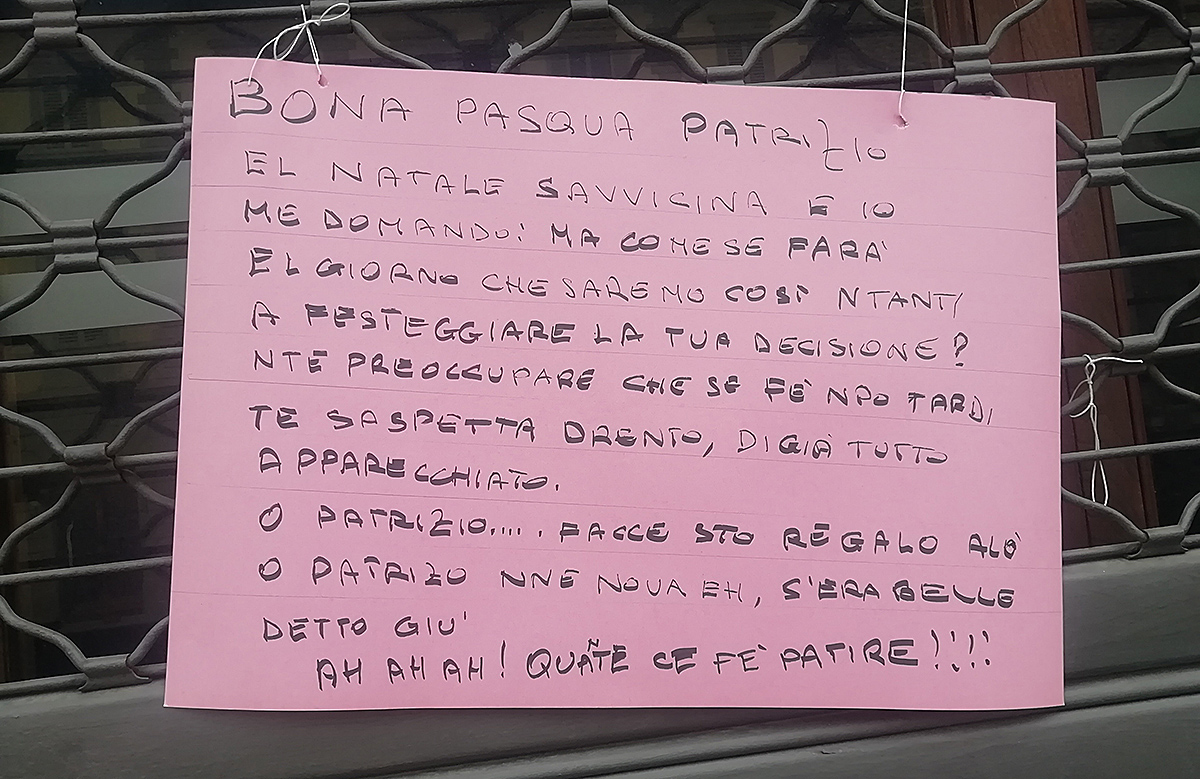 BONA PASQUA PATRIZIO
EL NATALE SAVVICINA E IO
ME DOMANDO: MA COME SE FARÀ
EL GIORNO CHE SAREMO COSÌ NTANTI
A FESTEGGIARE LA TUA DECISIONE?
NTE PREOCCUPARE CHE SE FE' NPO TARDI
TE SASPETTA DRENTO, DI GIÀ TUTTO
APPARECCHIATO.
O PATRIZIO..... FACCE STO REGALO ALÒ
O PATRIZO NNE NOVA EH, S'ERA BELLE
DETTO GIU'
AH AH AH! QUANTE CE FE' PATIRE!!!!